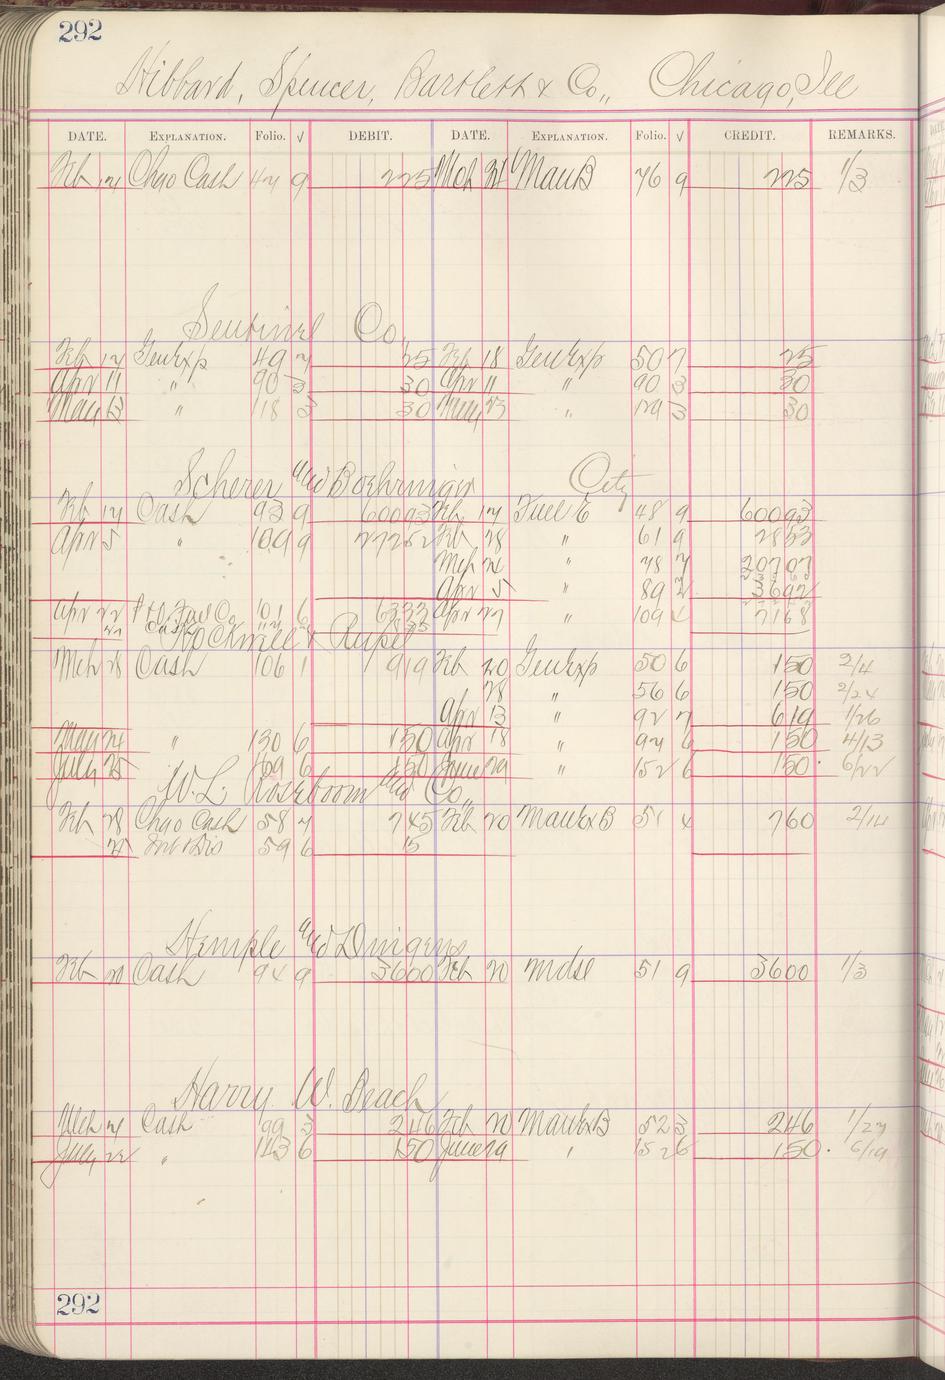 292
Hibbard, Spencer, Bartlett & Co., Chicago, Ill
DATE. EXPLANATION. Folio. √ DEBIT. DATE. EXPLANATION. Folio. √ CREDIT. REMARKS.
Feb 17 Chgo Cash 47 9 225 Mch 21 ManB 76 9 225 1/3
Sentinel Co.
Feb 17 GenExp 49 7 25 Feb 18 GenExp 50 7 25
Apr 11 " 90 3 30 Apr 11 " 90 3 30
May 13 " 118 3 30 May 23 " 129 3 30
Scherer and Boehringer City
Feb 17 Cash 93 9 60093 Feb 17 Fuel E 48 9 60093
Apr 5 " 109 9 27252 Feb 28 " 61 9 2853
Mch 24 " 78 7 20707
Apr 5 " 89 2 3692
Apr 22 101 6 6333 Apr 27 " 109 4 7168
27 Cash 835
Rockmill & Rupel
Mch 28 Cash 106 1 919 Feb 20 GenExp 50 6 150 2/4
28 " 56 6 150 2/24
Apr 13 " 92 7 619 1/26
May 24 " 130 6 150 Apr 18 " 97 6 150 4/13
July 25 169 6 150 June 29 " 152 6 150 6/22
W. L. Roseboom and Co.,
Feb 28 Chgo Cash 58 7 745 Feb 20 ManExB 51 4 760 2/14
28 Int & Dis 59 6 15
Hemple and Dingens
Feb 21 Cash 94 9 3600 Feb 20 Mdse 51 9 3600 1/3
Harry W. Beach
Mch 7 Cash 99 3 246 Feb 20 ManExB 52 3 246 1/27
July 22 " 143 6 150 June 29 " 152 6 150 6/19
292